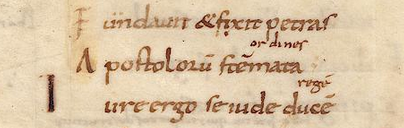 Fundauit & fixit petras
ordines
Apostolorū stēmata
regē
Iure ergo se iude ducē